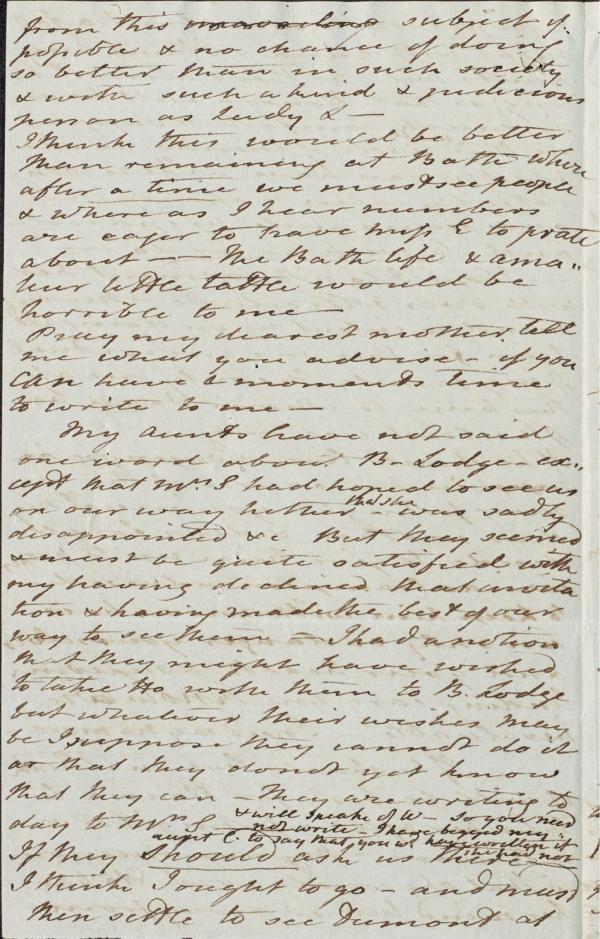 from this unavailing subject if
possible & no chance of doing
so better than in such society
& with such a kind & judicious
person as Lady L—
I think this would be better
than remaining at Bath where
after a time we must see people
& where as I hear numbers
are eager to have Miss E to prate
about — The Bath life & ama"
teur little tattle would be
horrible to me—
Pray my dearest mother tell
me what you advise – if you
can have a moments time
to write to me —
My aunts have not said
one word about B– Lodge – ex"
cept that Mrs S had hoped to see us
on our way hither that she was sadly
disappointed &c But they seemed
& must be quite satisfied with
my having declined that invita
tion & having made the best of our
way to see them – I had a notion
that they might have wished
to take us with them to B. Lodge
but whatever their wishes may
be I suppose they cannot do it
or that they do not yet know
that they can They are writing to
day to Mrs S & will speak of W– so you need
not write – I have begged my
aunt C. to say that you wd have written if
she had not
If they should ask us there
I think I ought to go – and must
then settle to see Dumont at